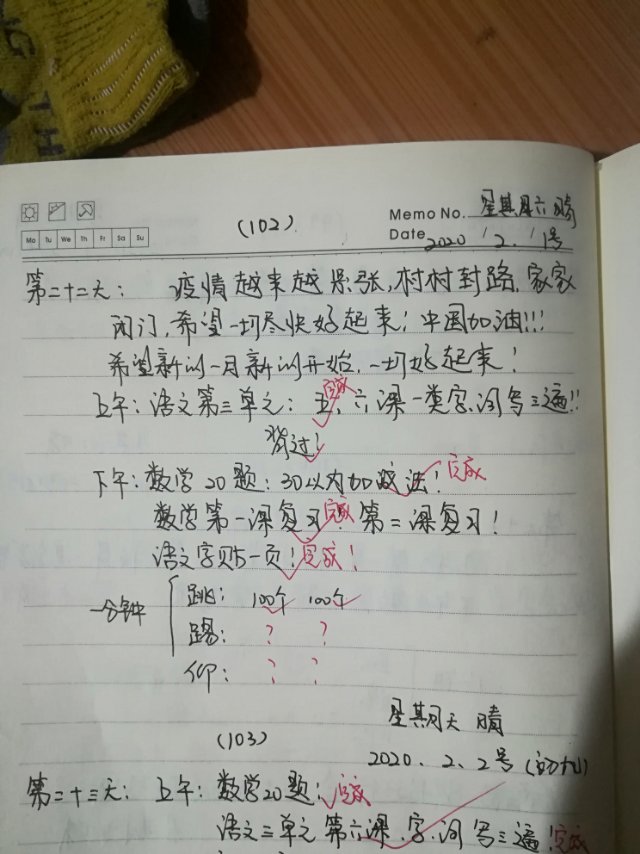 (102)
Memo No. 星其月六 晴
Date 2020 / 2. / 1号
Mo Tu We Th Fr Sa Su
第二十二天: 疫情越来越紧张,村村封路,家家
闭门,希望一切尽快好起来! 中国加油!!!
希望新的一月新的开始,一切好起来!
上午: 语文第三单元: 五、六课一类字、词写三遍!! 完成
背过!
下午: 数学20题: 30以内加减法! 完成
数学第一课复习! 完成 第二课复习!
语文字贴一页! 完成!
一分钟
跳: 100个 100个
踢: ? ?
仰: ? ?
星其月天 晴
(103)
2020. 2. 2号 (初九)
第二十三天: 上午: 数学20题: 完成
语文三单元 第六课 字、词 写三遍! 完成